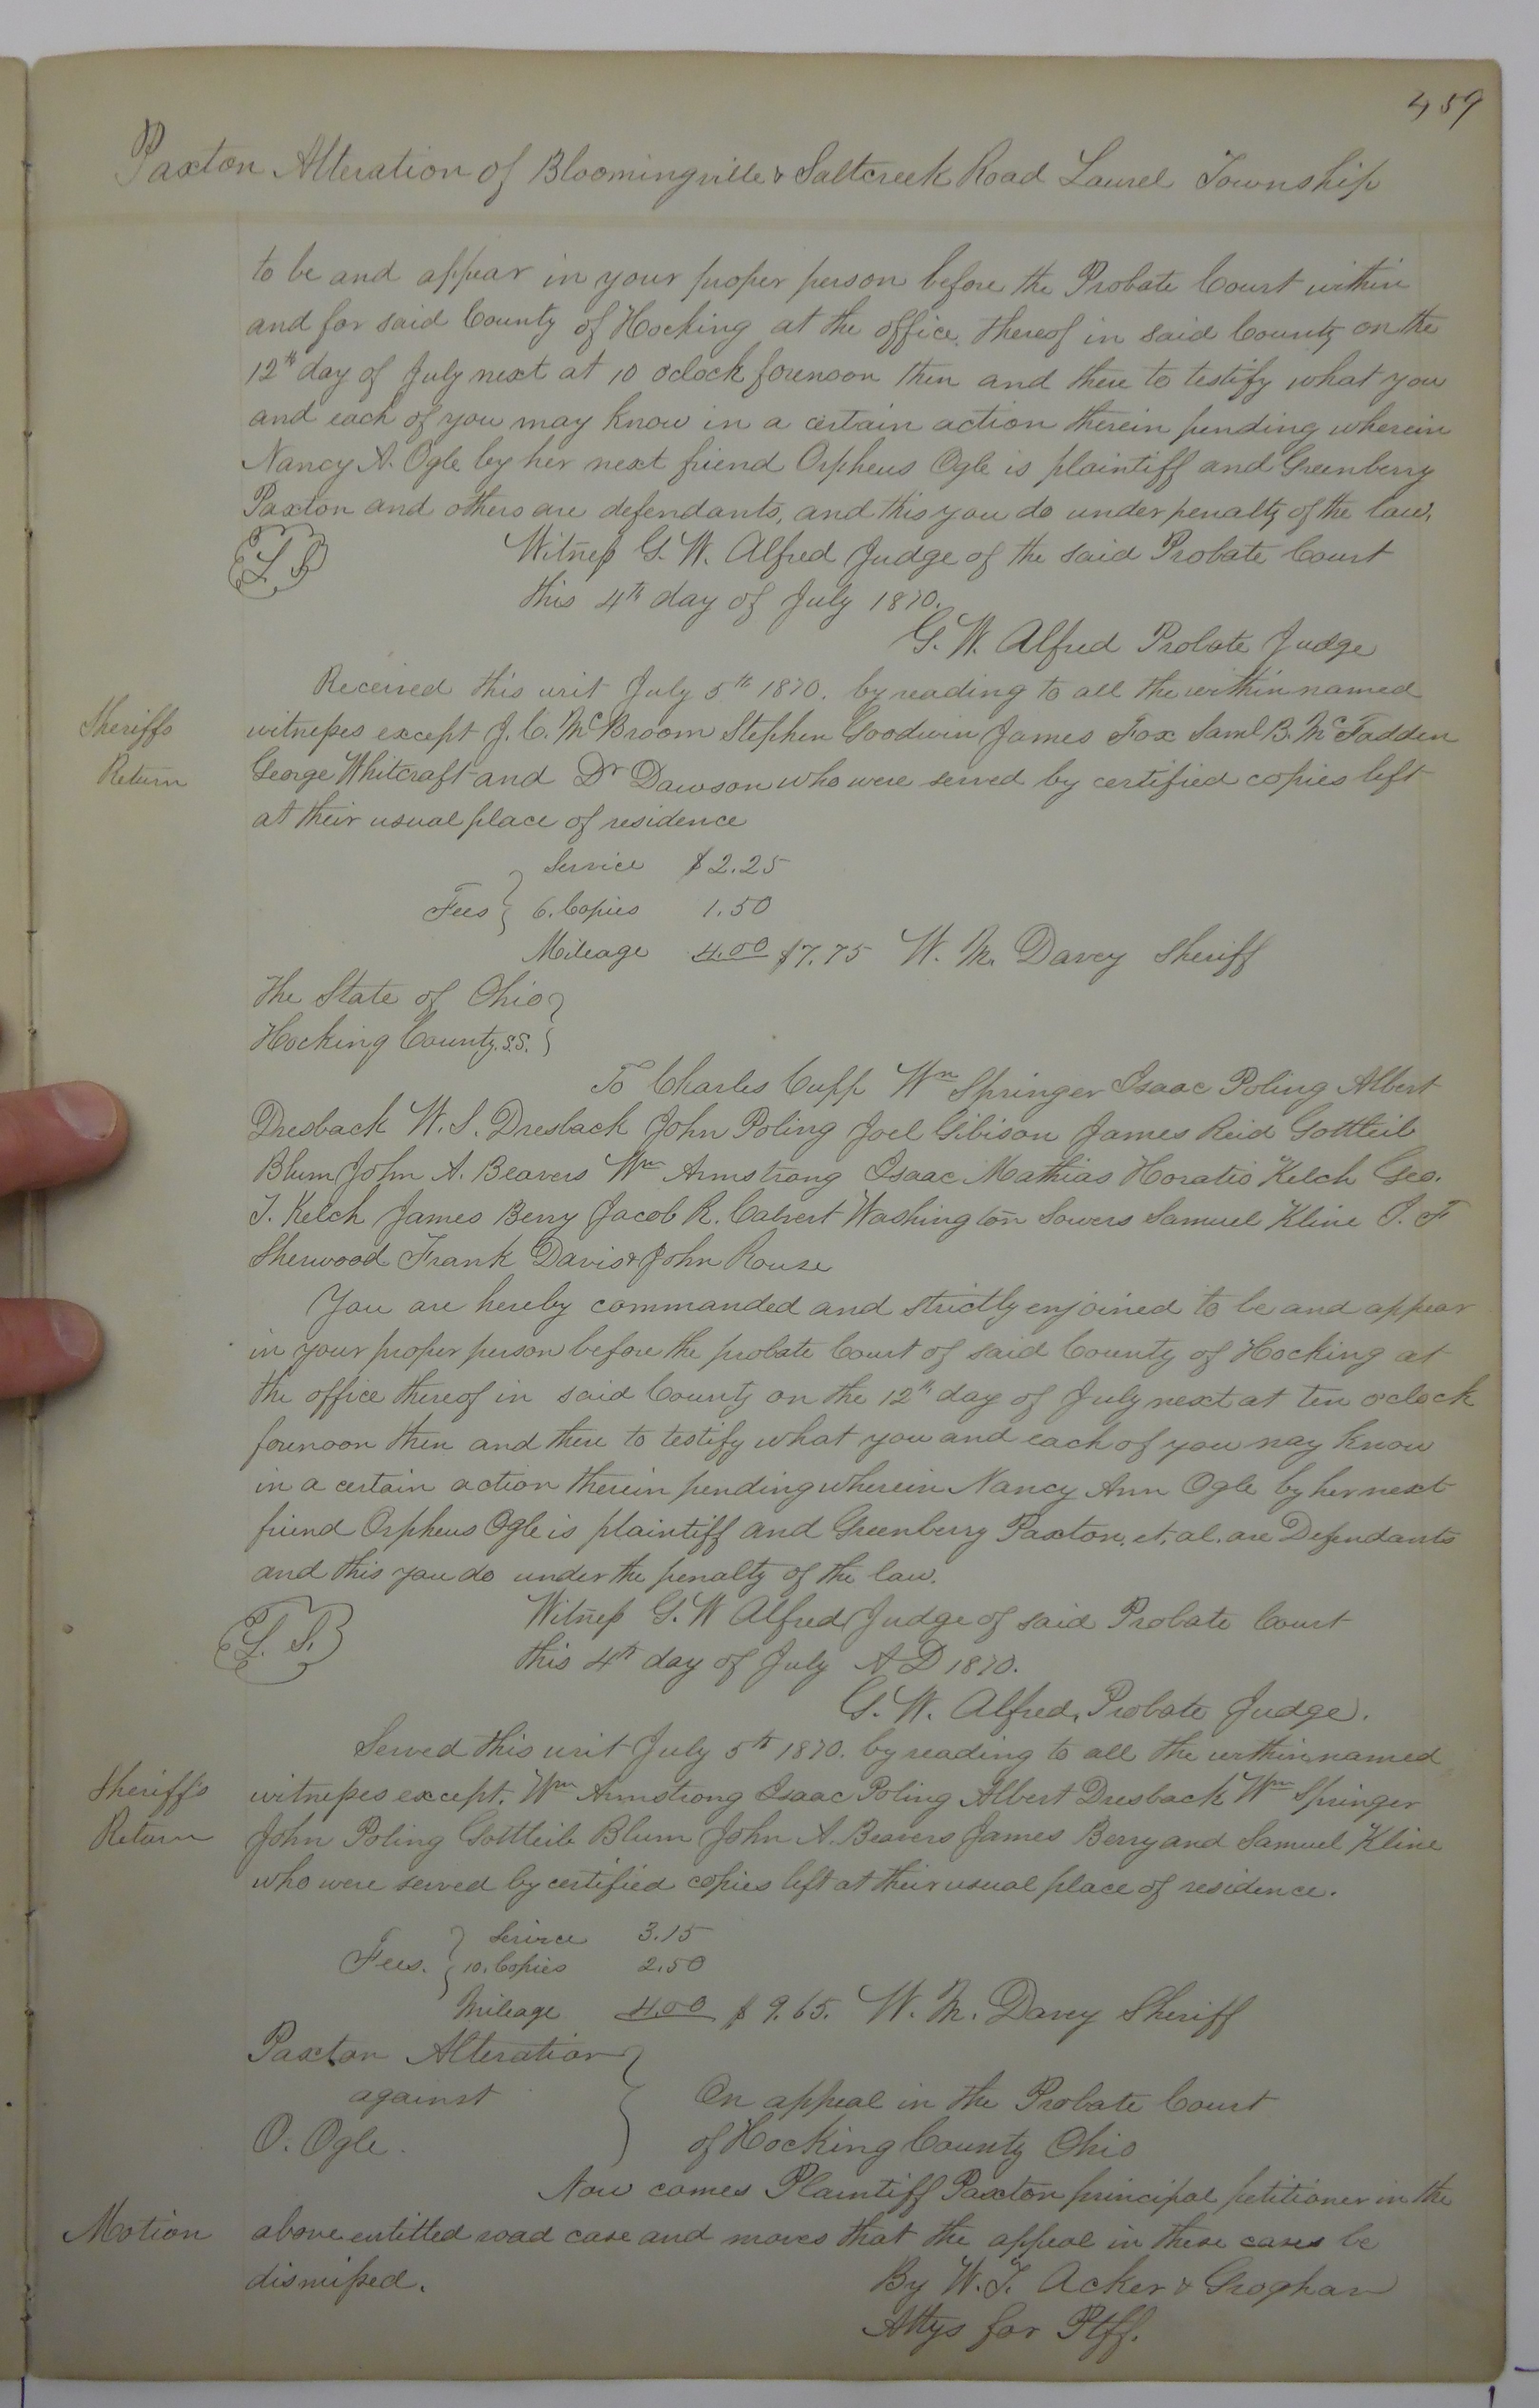 459
Paxton Alteration of Bloomingville & Saltcreek Road Laurel Township
to be and appear in your proper person before the Probate Court within
and for said County of Hocking at the office thereof in said County on the
12th day of July next at 10 oclock forenoon then and there to testify what you
and each of you may know in a certain action therein pending wherein
Nancy A. Ogle by her next friend Orpheus Ogle is plaintiff and Greenberry
Paxton and others are defendants, and this you do under penalty of the law.
L S Witness G. W. Alfred Judge of the said Probate Court
this 4th day of July 1870.
G. W. Alfred Probate Judge
Received this writ July 5th 1870. by reading to all the within named
Sheriffs witnesses except J. C. McBroom Stephen Goodwin James Fox Saml B. McFadden
Return George Whitcraft and Dr Dawson who were served by certified copies left
at their usual place of residence
Service $2.25
Fees 6. Copies 1.50
Mileage 4.00 $7.75 W. M. Davey Sheriff
The State of Ohio
Hocking County S.S.
To Charles Cupp Wm Springer Isaac Poling Albert
Dresback W. S. Dresback John Poling Joel Gibison James Reid Gottleib
Blum John A. Beavers Wm Armstrong Isaac Mathias Horatio Kelch Geo.
T. Kelch James Berry Jacob R. Calvert Washington Sowers Samuel Kline J. F
Sherwood Frank Davis & John Rouse
You are hereby commanded and strictly enjoined to be and appear
in your proper person before the probate Court of said County of Hocking at
the office thereof in said County on the 12th day of July next at ten oclock
forenoon then and there to testify what you and each of you may know
in a certain action therein pending wherein Nancy Ann Ogle by her next
friend Orpheus Ogle is plaintiff and Greenberry Paxton, et, al. are Defendants
and this you do under the penalty of the law.
L. S. Witness G. W Alfred Judge of said Probate Court
this 4th day of July A D 1870.
G. W. Alfred, Probate Judge.
Served this writ July 5th 1870. by reading to all the within named
Sheriffs witnesses except. Wm Armstrong Isaac Poling Albert Dresback Wm Springer
Return John Poling Gottleib Blum John A. Beavers James Berry and Samuel Kline
who were served by certified copies left at their usual place of residence.
Service 3.15
Fees. 10. Copies 2.50
Mileage 4.00 $ 9.65. W. M. Davey Sheriff
Paxton Alteration
against On appeal in the Probate Court
O. Ogle. of Hocking County Ohio
Now comes Plaintiff Paxton principal petitioner in the
Motion above entitled road case and moves that the appeal in these cases be
dismissed. By W. T. Acker & Groghan
Attys for Ptff.